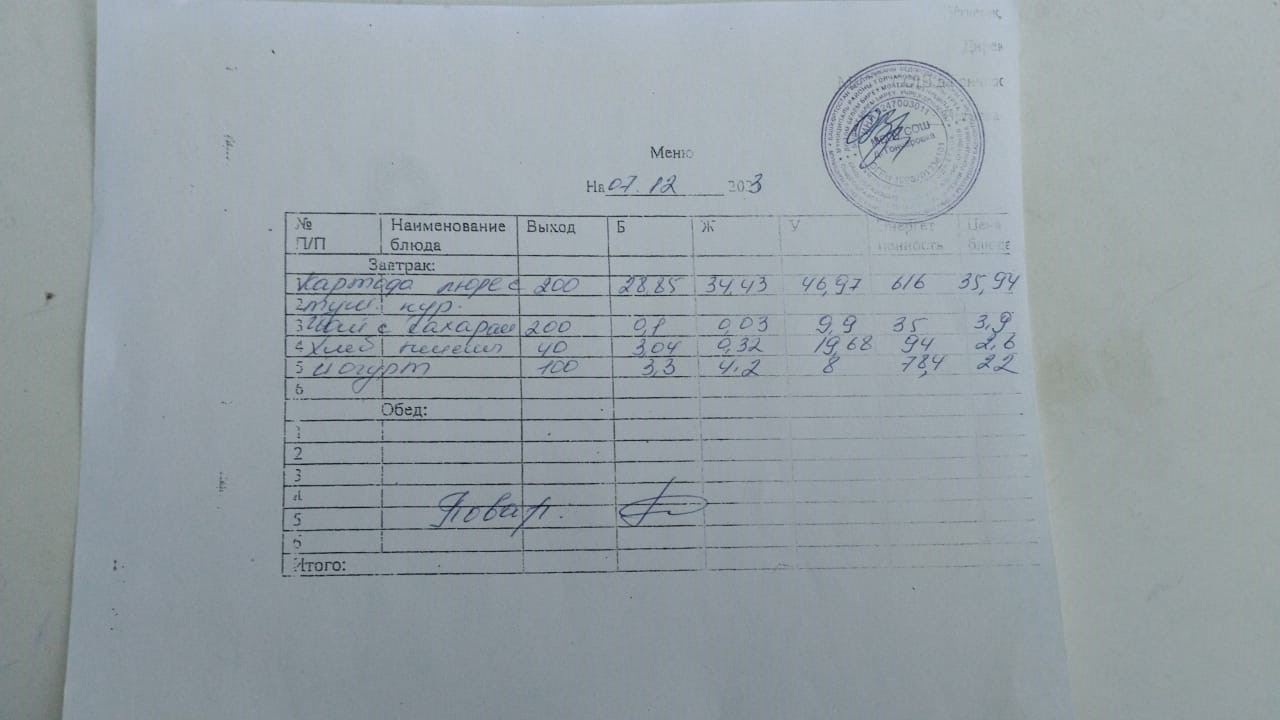 Дирек
Меню
На 07.12 2023
№ П/П Наименование блюда Выход Б Ж У Энергет ценность Цена блюда
Завтрак:
Картоф пюре с 200 28,85 34,43 46,97 616 35,94
2 туш. кур.
3 Чай с сахаром 200 0,1 0,03 9,9 35 3,9
4 Хлеб 40 3,04 0,32 19,68 94 2,6
5 Йогурт 100 3,3 4.2 8 78,4 22
6
Обед:
1
2
3
4
5 Повар.
6
Итого: